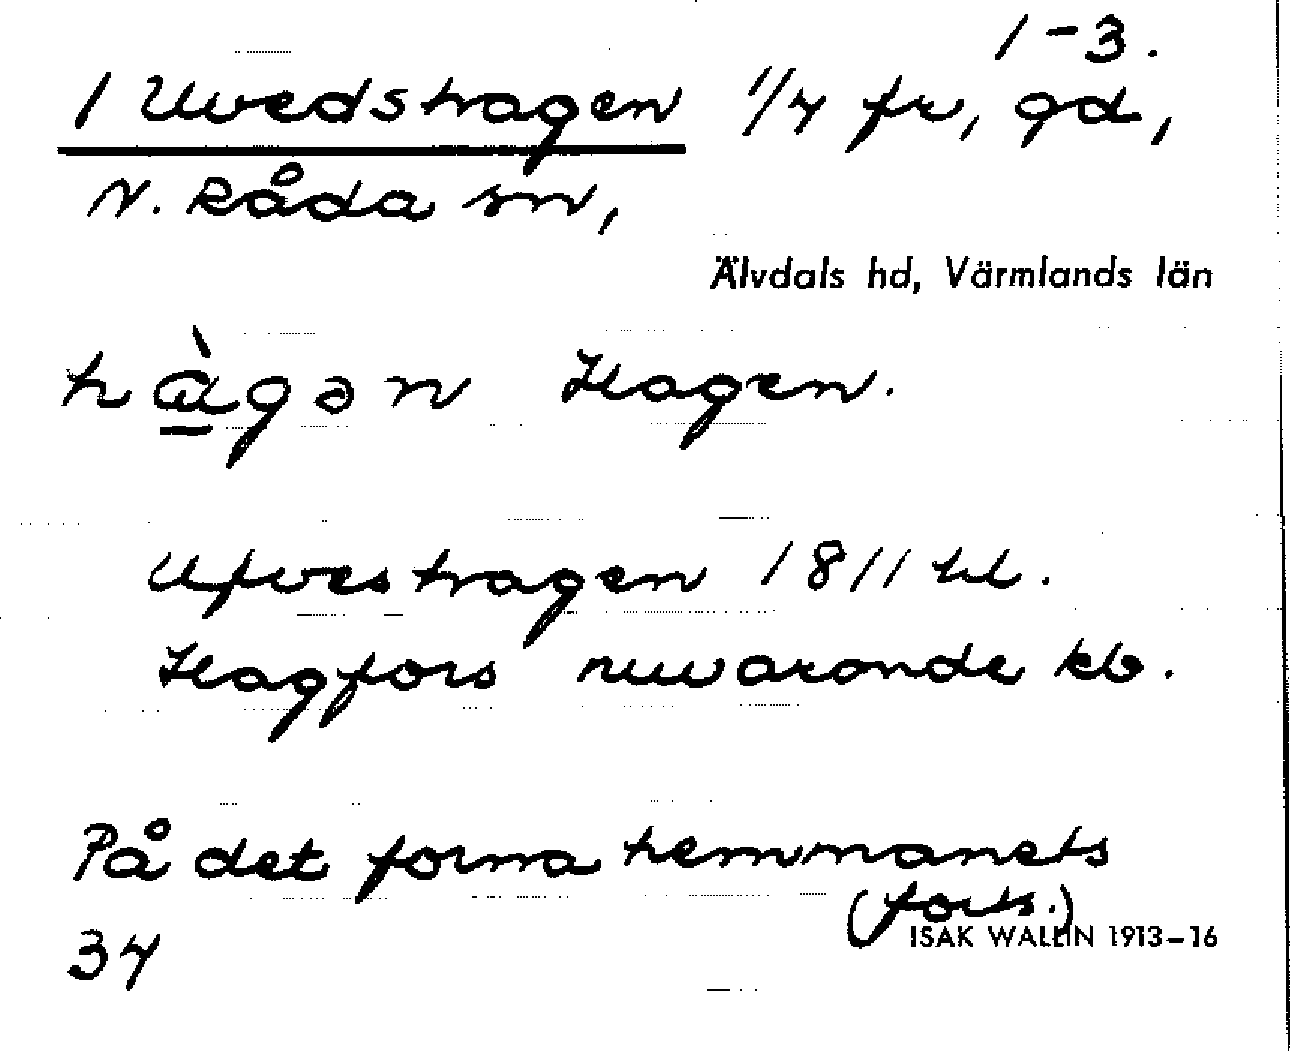 1-3.
1 Uvedshagen 1/4 fr, gd,
N. Råda sn,
Älvdals hd, Värmlands län
hàgən Hagen.
Ufveshagen 1811 hl.
Hagfors nuvarande kb.
På det forna hemmanets
(forts.)
34 ISAK WALLIN 1913–16